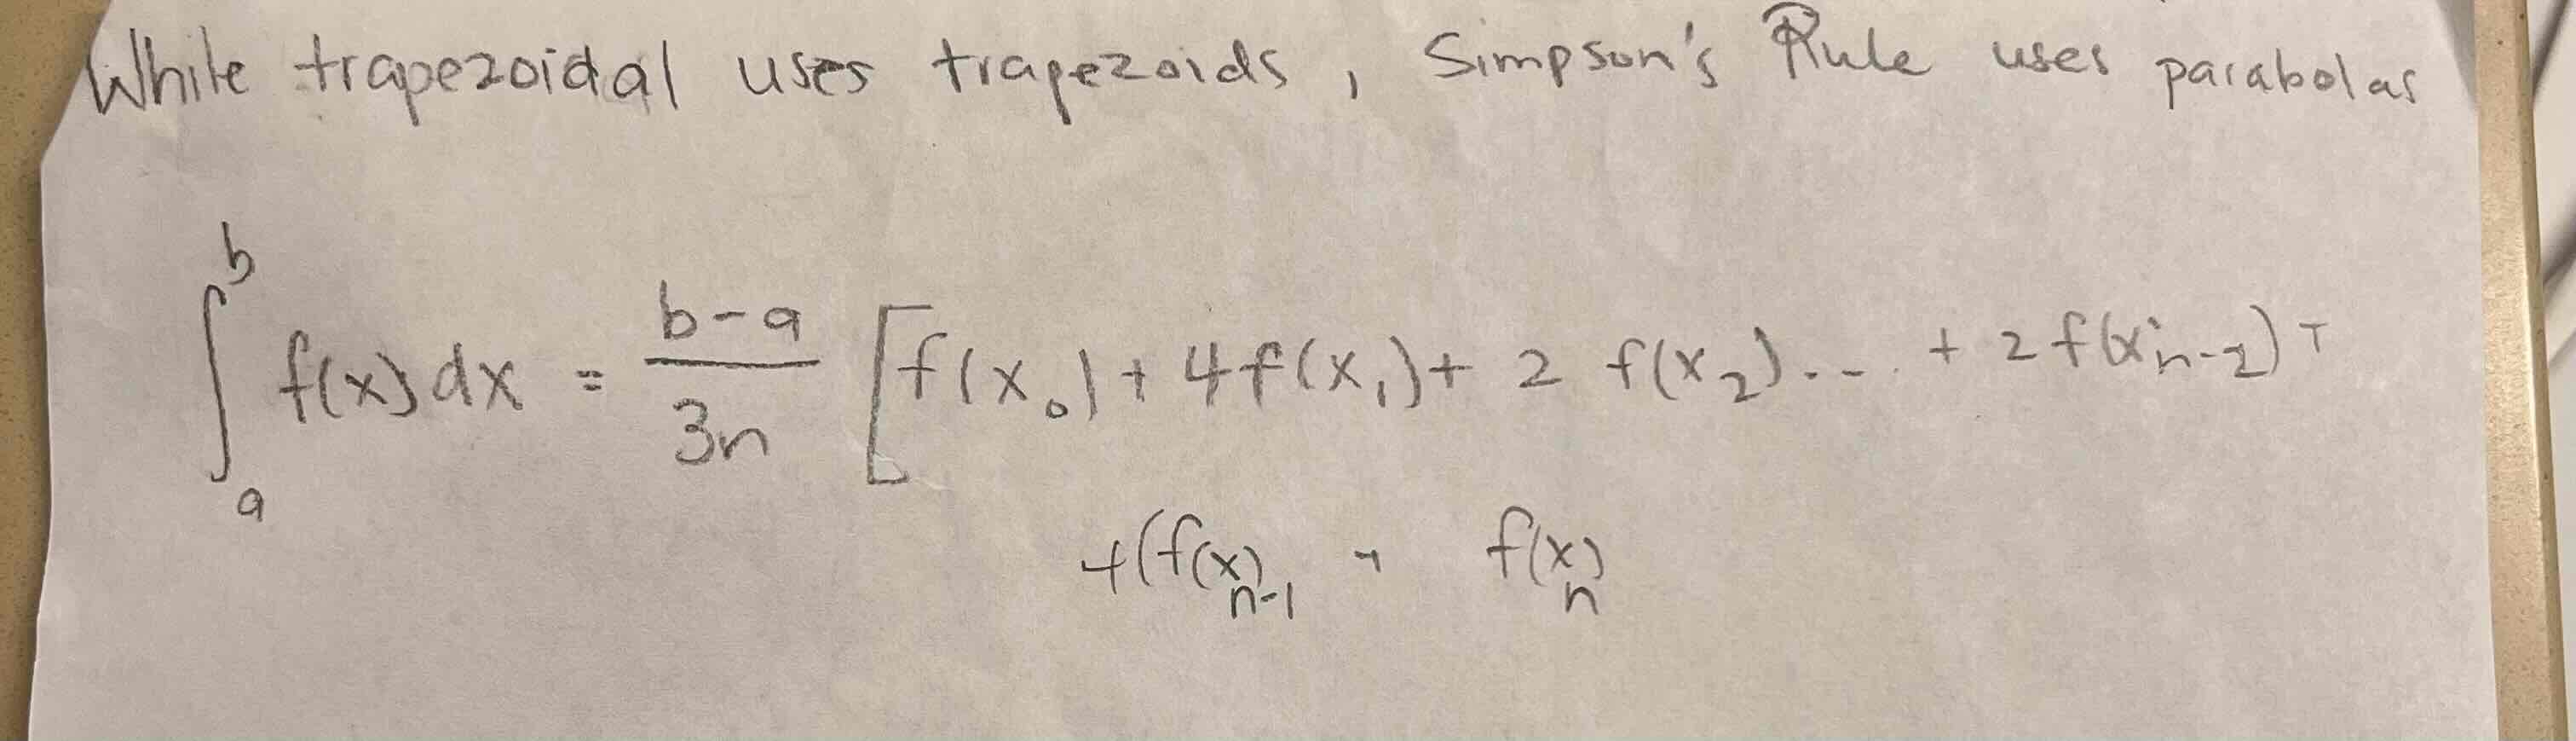 While trapezoidal uses trapezoids, Simpson's Rule uses parabolas
∫_a^b f(x) dx = (b-a)/(3n) [f(x_0) + 4f(x_1) + 2 f(x_2) ... + 2f(x_{n-2}) +
+(f(x)_{n-1} + f(x)_n